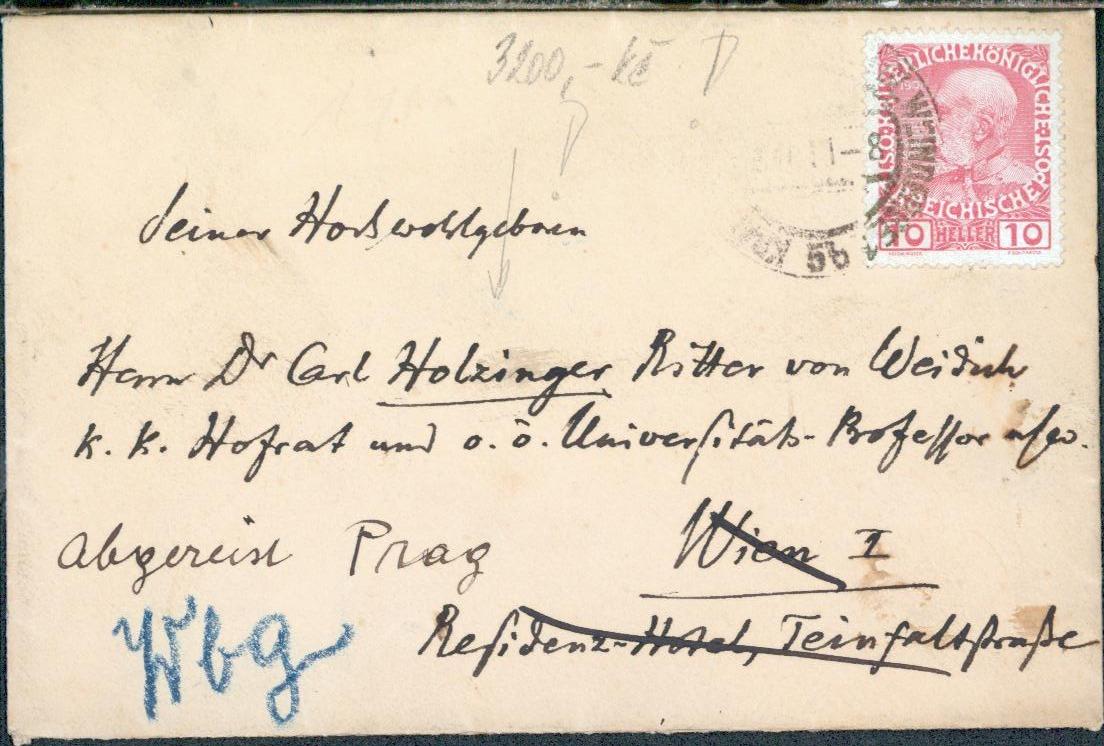 3200,- Kč
KAISERLICHEKÖNIGLICHE ÖSTERREICHISCHE
10 HELLER 10
5b
Seiner Hochwohlgeboren
Herrn Dr Carl Holzinger Ritter von Weidich
K. K. Hofrat und o. ö. Universitäts-Professor usw.
Abgereist Prag
Wien I
Residenz-Hotel, Teinfaltstraße
Wbg